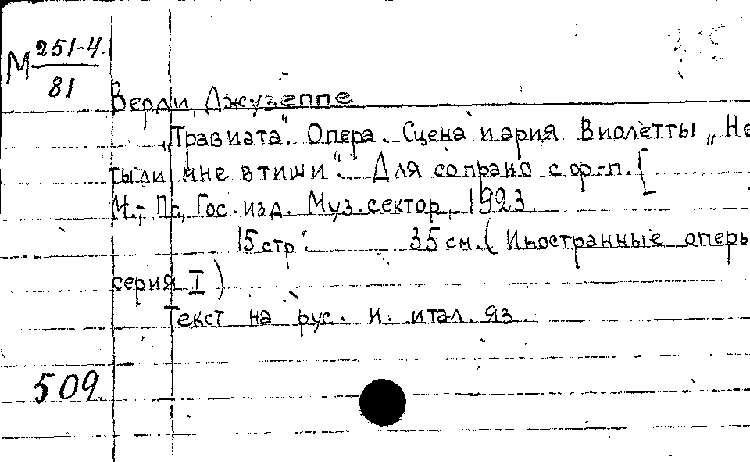 М 251-4
81
Верди, Джузеппе
„Травиата". Опера. Сцена и ария Виолетты „Не
ты ли мне в тиши". Для сопрано с ф-п. [
М.-Пг, Гос. изд. Муз. сектор, 1923
15 стр. 35 см. (Иностранные оперы
серия I)
Текст на рус. и. итал. яз
509